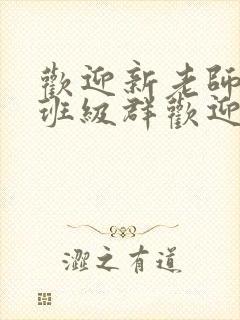 歡迎新老師
班級群歡迎
澀之有道